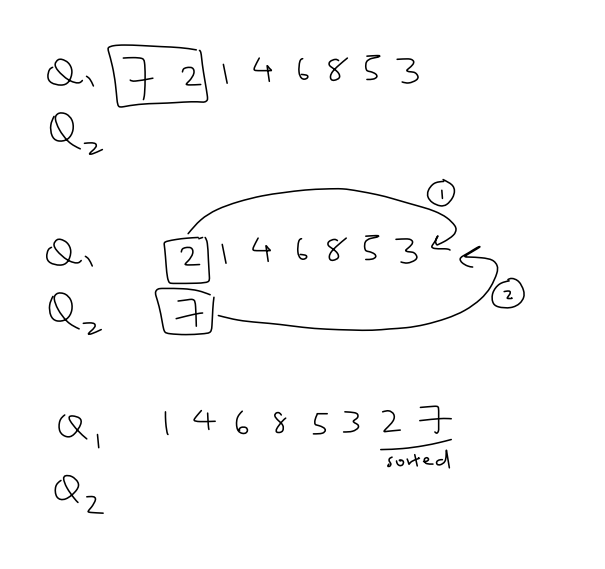 Q1 7 2 1 4 6 8 5 3
Q2
1
Q1 2 1 4 6 8 5 3
Q2 7
2
Q1 1 4 6 8 5 3 2 7
sorted
Q2